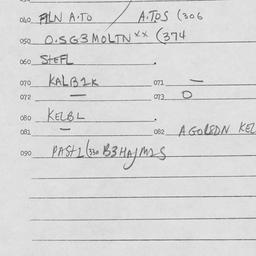 040 A.TO A.TOS (306
050 O.SG3MOLTN xx (374
060 STEFL .
070 KALB1K 071 —
072 — 073 O
080 KELBL .
081 — 082 A GOLEDN KEL
090 PAST1 (330 B3HAJM1S